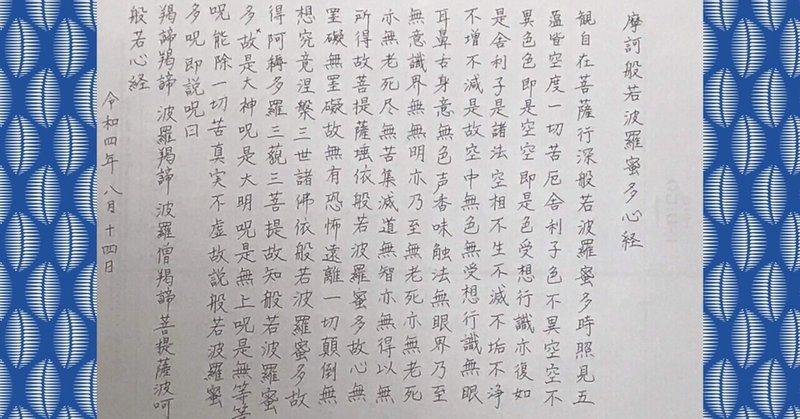 摩訶般若波羅蜜多心経
観自在菩薩行深般若波羅蜜多時照見五
蘊皆空度一切苦厄舎利子色不異空空不
異色色即是空空即是色受想行識亦復如
是舎利子是諸法空相不生不滅不垢不浄
不増不減是故空中無色無受想行識無眼
耳鼻舌身意無色声香味触法無眼界乃至
無意識界無無明亦乃至無老死亦無老死
亦無老死尽無苦集滅道無智亦無得以無
所得故菩提薩埵依般若波羅蜜多故心無
罣礙無罣礙故無有恐怖遠離一切顛倒無
想究竟涅槃三世諸佛依般若波羅蜜多故
得阿耨多羅三藐三菩提故知般若波羅蜜
多故是大神呪是大明呪是無上呪是無等等
呪能除一切苦真実不虚故説般若波羅蜜
多呪即説呪曰
羯諦羯諦 波羅羯諦 波羅僧羯諦 菩提薩波呵
般若心経
令和四年 八月十四日